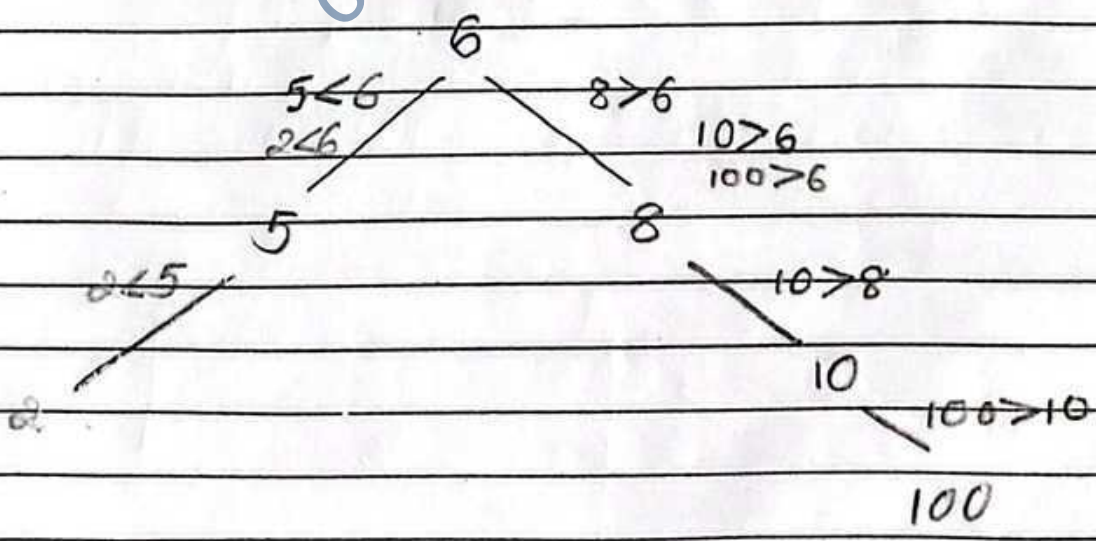 6
5<6 8>6
2<6 10>6
100>6
5 8
2<5 10>8
10
2 100>10
100